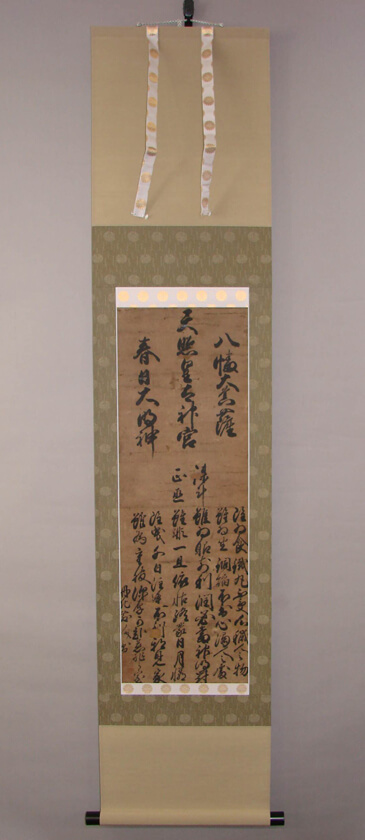 八幡大菩薩
天照皇太神宮
春日大明神
雖為食鐵丸不受心穢人物
雖為坐銅焔不到心濁人處
謀計雖為眼前利潤必當神明罰
正直雖非一旦依怙終蒙日月憐
雖曳千日注連不到邪見家
雖為重服深厚可趣慈悲室